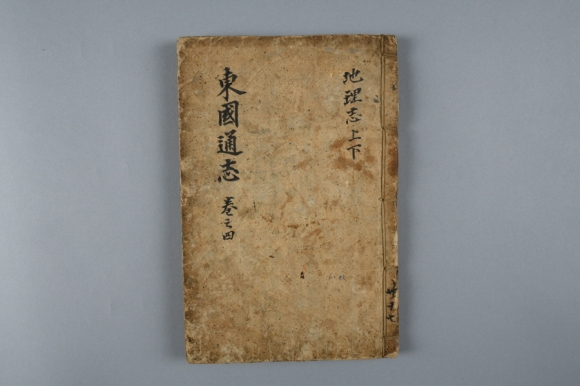 地理志 上下
東國通志 卷之四